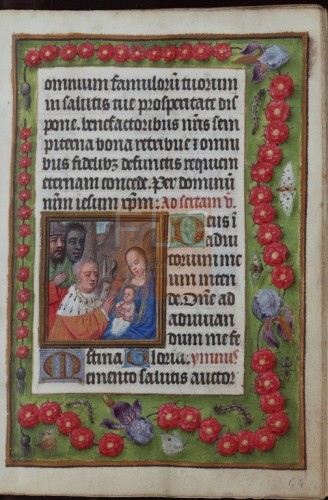 omnium famulorū tuorum
in salutis tue prosperitate dis
pone. benefactoribus nr̄is sem
piterna bona retribue ⁊ omni
bus fidelibꝫ defunctis requiem
eternam concede. Per dominū
nr̄m iesum xp̄m: Ad sextam v̄.
Deus ī
adiu
torium me
um inten
de. Dn̄e ad
adiuuan
dum me fe
stina Gloria. ymnus
Memento salutis auctor